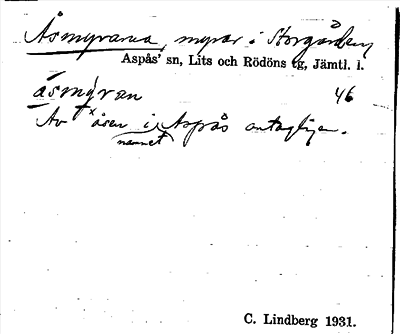 Åsmyrarna, myrar i Storgården
Aspås' sn, Lits och Rödöns tg, Jämtl. l.
åsmýren 46
Av †ˣåsen i Aspås antagligen.
namnet
C. Lindberg 1931.